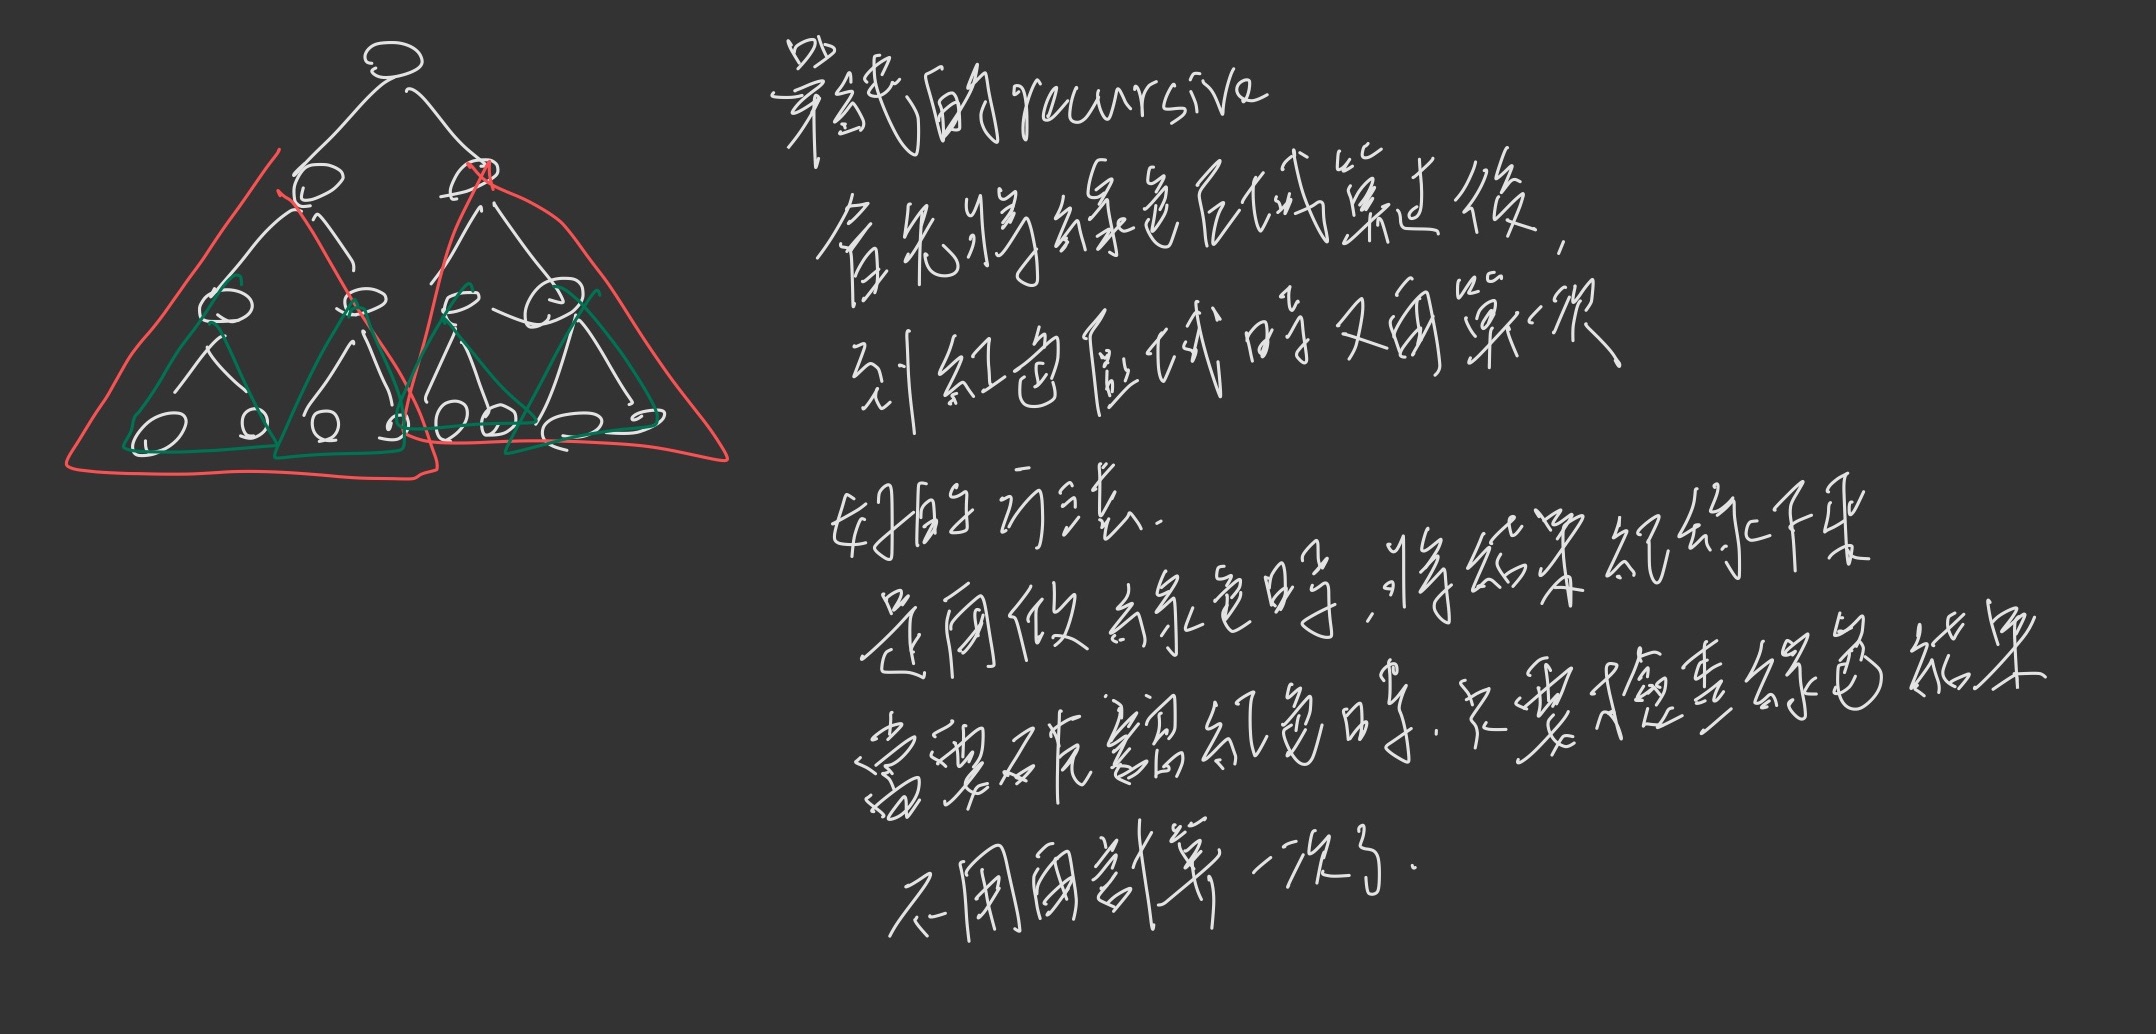 單純的recursive
首先將綠色区域算过後,
到紅色區域時又再算一次
好的方法.
是再做綠色時,將結果紀綠下來
當要確認紅色時.只要檢查綠色結果
不用再計算一次了.